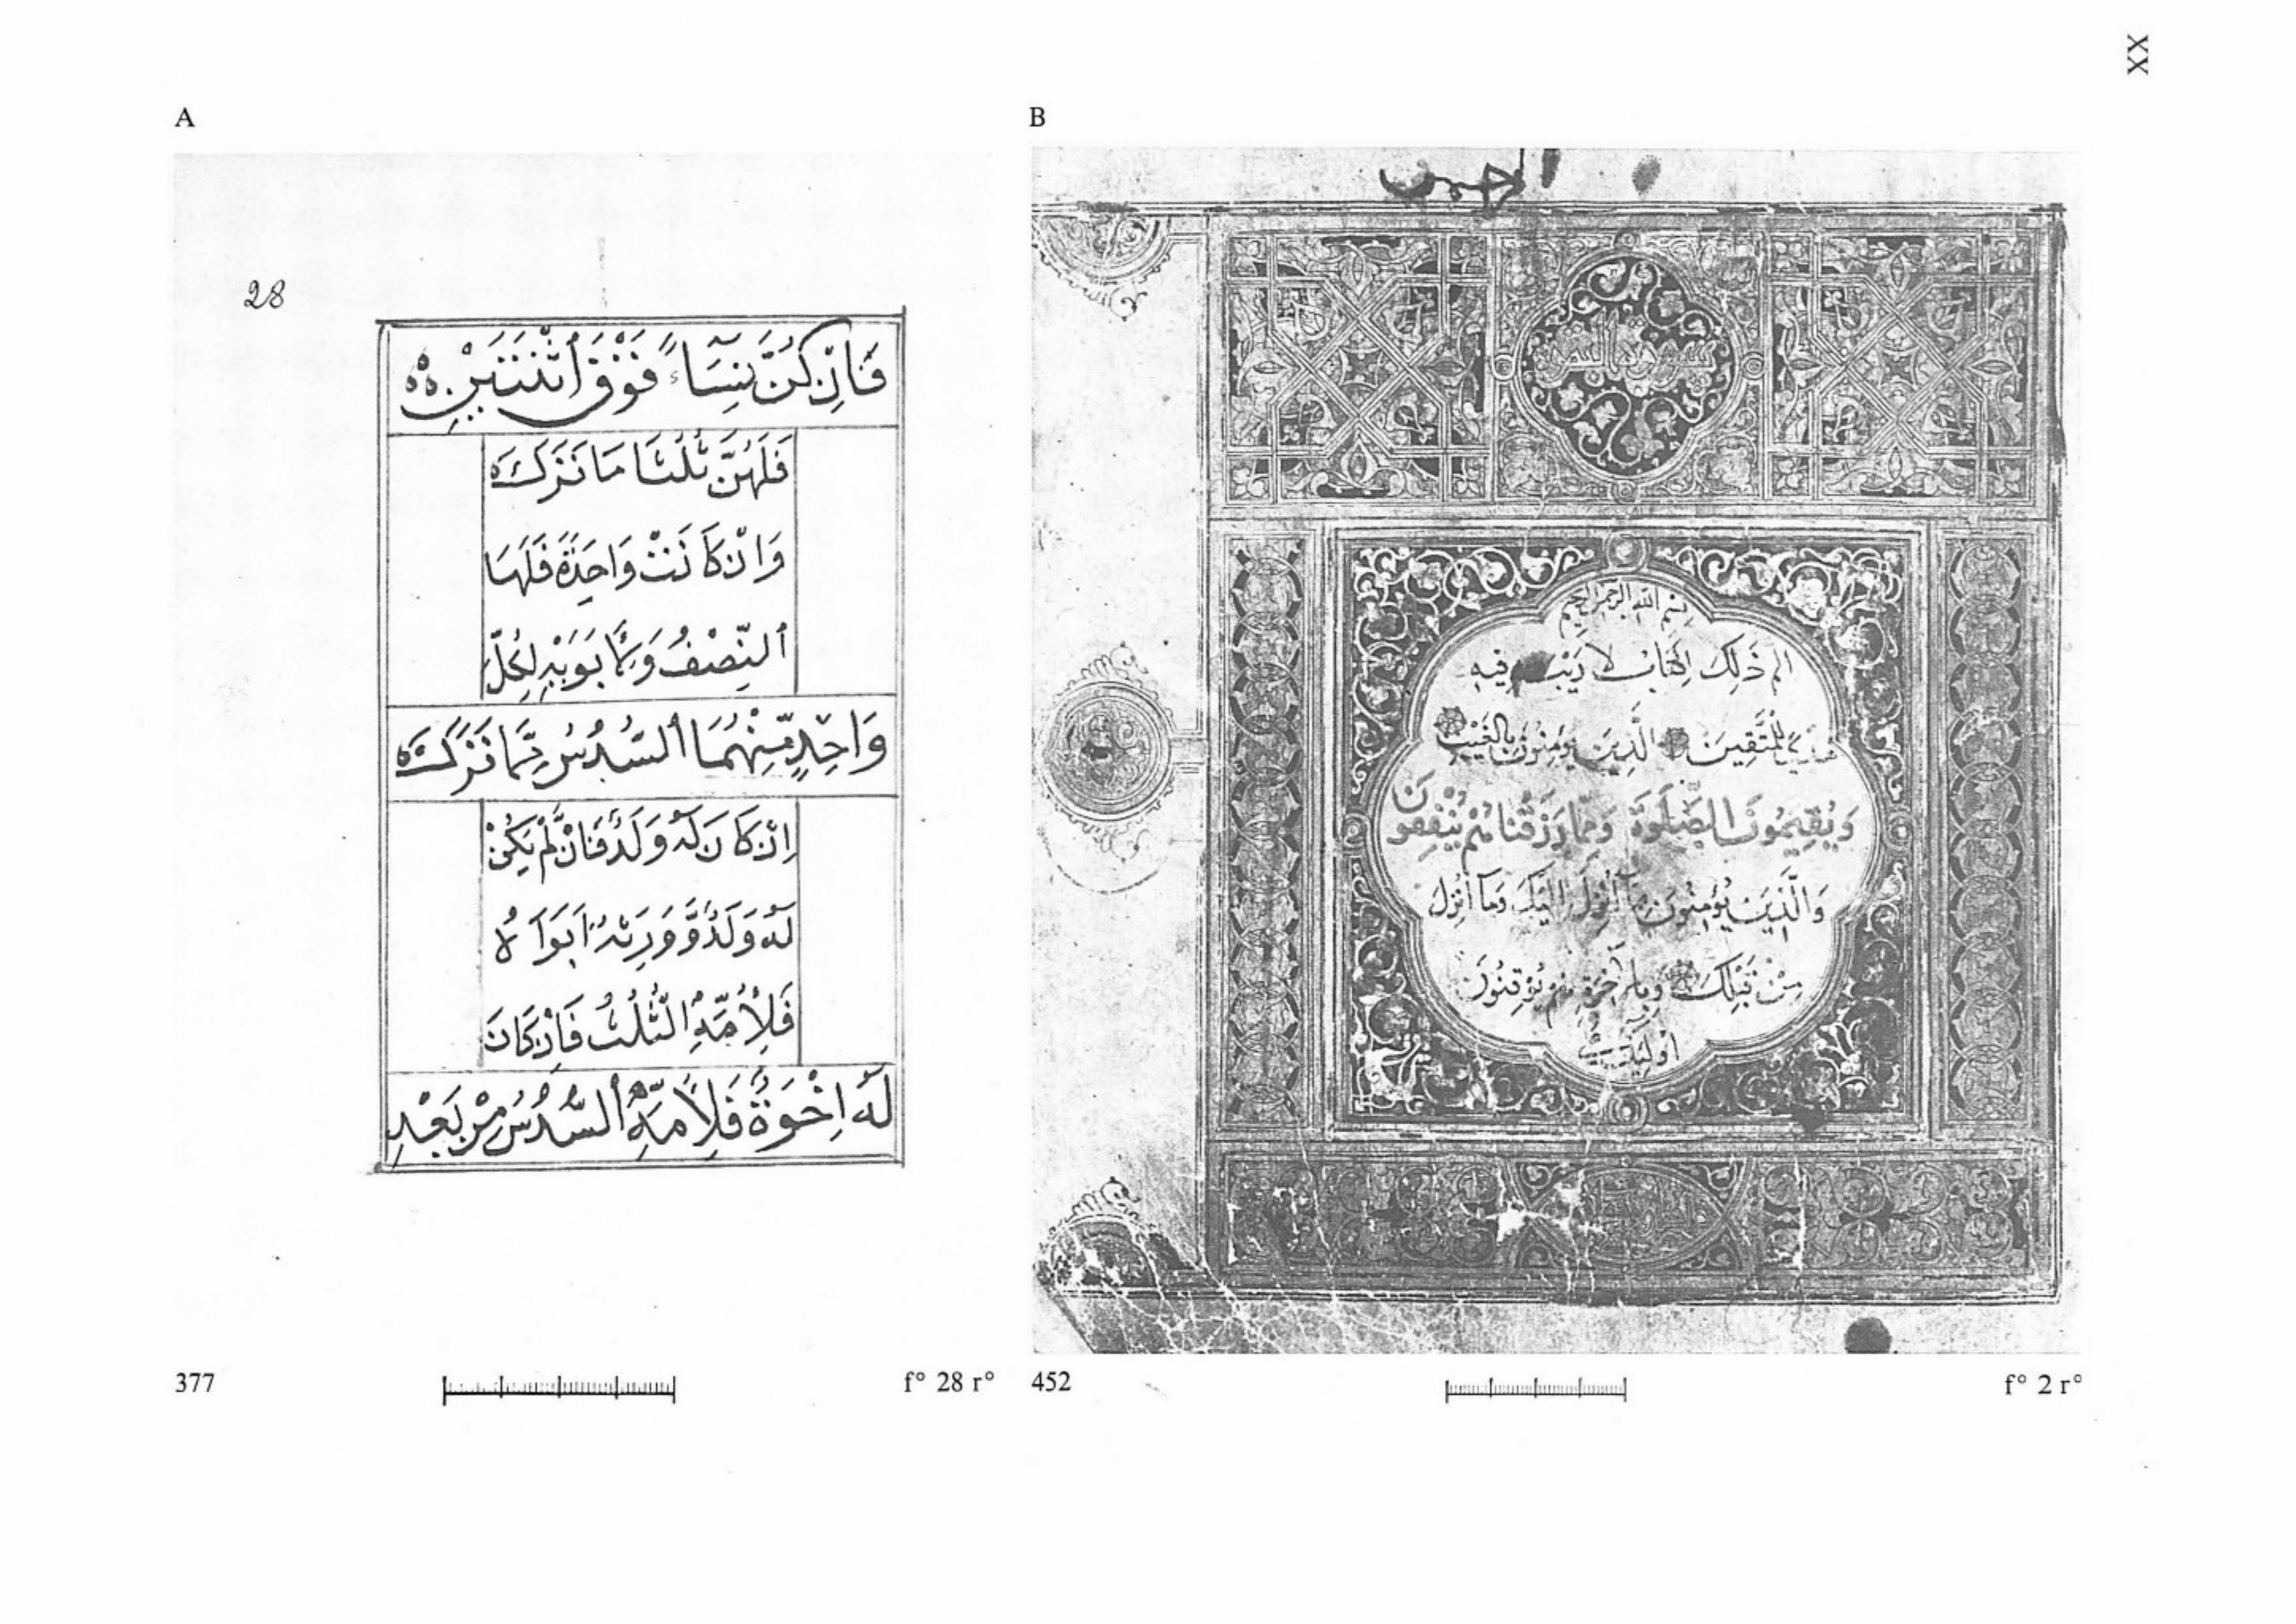 XX
A
28
فَاِنْ كُنَّ نِسَآءً فَوْقَ ٱثْنَتَيْنِ
فَلَهُنَّ ثُلُثَا مَا تَرَكَ
وَاِنْ كَانَتْ وَاحِدَةً فَلَهَا
ٱلنِّصْفُ وَلِاَبَوَيْهِ لِكُلِّ
وَاحِدٍ مِّنْهُمَا ٱلسُّدُسُ مِمَّا تَرَكَ
اِنْ كَانَ لَهُ وَلَدٌ فَاِنْ لَّمْ يَكُنْ
لَهُ وَلَدٌ وَّوَرِثَهُ اَبَوَاهُ
فَلِاُمِّهِ الثُّلُثُ فَاِنْ كَانَ
لَهُ اِخْوَةٌ فَلِاُمِّهِ ٱلسُّدُسُ مِنْ بَعْدِ
377
f° 28 r°
B
بِسْمِ اللهِ الرحمن الرحيم
الم ذَلِكَ الْكِتَابُ لَا رَيْبَ فِيهِ
هُدًى لِلْمُتَّقِينَ الَّذِينَ يُؤْمِنُونَ بِالْغَيْبِ
وَيُقِيمُونَ الصَّلَوةَ وَمِمَّا رَزَقْنَاهُمْ يُنْفِقُونَ
وَالَّذِينَ يُؤْمِنُونَ بِمَا أُنْزِلَ اِلَيْكَ وَمَا أُنْزِلَ
مِنْ قَبْلِكَ وَبِالْآخِرَةِ هُمْ يُوقِنُونَ
أُولَئِكَ
452
f° 2 r°